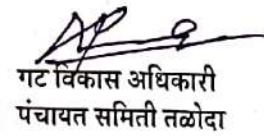 गट विकास अधिकारी
पंचायत समिती तळोदा